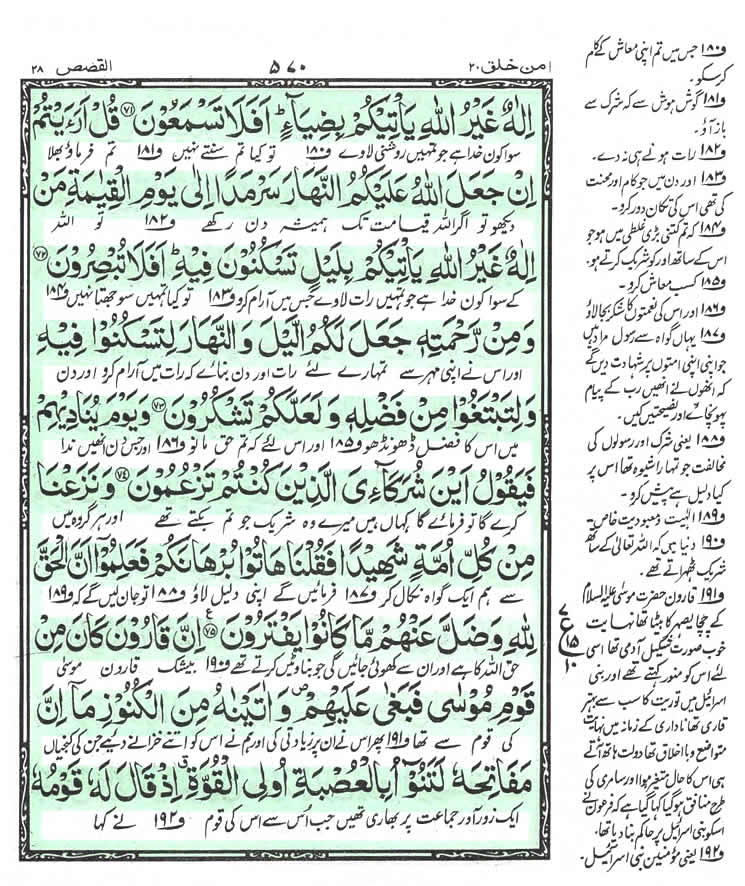 امن خلق ۲۰
۵۷۰
القصص ۲۸
اِلٰهٌ غَیْرُ اللّٰهِ یَاْتِیْكُمْ بِضِیَآءٍ ؕ اَفَلَا تَسْمَعُوْنَ ﴿۷۱﴾ قُلْ اَرَءَیْتُمْ
سوا کون خدا ہے جو تمہیں روشنی لادے و۱۸۰ تو کیا تم سنتے نہیں و۱۸۱ تم فرماؤ بھلا
اِنْ جَعَلَ اللّٰهُ عَلَیْكُمُ النَّهَارَ سَرْمَدًا اِلٰی یَوْمِ الْقِیٰمَةِ مَنْ
دیکھو تو اگر اللہ قیامت تک ہمیشہ دن رکھے و۱۸۲ تو اللہ
اِلٰهٌ غَیْرُ اللّٰهِ یَاْتِیْكُمْ بِلَیْلٍ تَسْكُنُوْنَ فِیْهِ ؕ اَفَلَا تُبْصِرُوْنَ ﴿۷۲﴾
کے سوا کون خدا ہے جو تمہیں رات لادے جس میں آرام کرو و۱۸۳ تو کیا تمہیں سوجھتا نہیں و۱۸۴
وَ مِنْ رَّحْمَتِهٖ جَعَلَ لَكُمُ الَّیْلَ وَ النَّهَارَ لِتَسْكُنُوْا فِیْهِ
اور اس نے اپنی مہر سے تمہارے لئے رات اور دن بنائے کہ رات میں آرام کرو اور دن
وَ لِتَبْتَغُوْا مِنْ فَضْلِهٖ وَ لَعَلَّكُمْ تَشْكُرُوْنَ ﴿۷۳﴾ وَ یَوْمَ یُنَادِیْهِمْ
میں اس کا فضل ڈھونڈھو و۱۸۵ اور اس لئے کہ تم حق مانو و۱۸۶ اور جس دن انھیں ندا
فَیَقُوْلُ اَیْنَ شُرَكَآءِیَ الَّذِیْنَ كُنْتُمْ تَزْعُمُوْنَ ﴿۷۴﴾ وَ نَزَعْنَا
کرے گا تو فرمائے گا کہاں ہیں میرے وہ شریک جو تم بکتے تھے اور ہر گروہ میں
مِنْ كُلِّ اُمَّةٍ شَهِیْدًا فَقُلْنَا هَاتُوْا بُرْهَانَكُمْ فَعَلِمُوْۤا اَنَّ الْحَقَّ
سے ہم ایک گواہ نکال کر و۱۸۷ فرمائیں گے اپنی دلیل لاؤ و۱۸۸ تو جان لیں گے کہ و۱۸۹
لِلّٰهِ وَ ضَلَّ عَنْهُمْ مَّا كَانُوْا یَفْتَرُوْنَ ﴿۷۵﴾ اِنَّ قَارُوْنَ كَانَ مِنْ
حق اللہ کا ہے اور ان سے کھوئی جائیں گی جو بناوٹیں کرتے تھے و۱۹۰ بیشک قارون موسٰی
قَوْمِ مُوْسٰی فَبَغٰی عَلَیْهِمْ ۪ وَ اٰتَیْنٰهُ مِنَ الْكُنُوْزِ مَاۤ اِنَّ
کی قوم سے تھا و۱۹۱ پھر اس نے ان پر زیادتی کی اور ہم نے اس کو اتنے خزانے دیے جن کی کنجیاں
مَفَاتِحَهٗ لَتَنُوْٓاُ بِالْعُصْبَةِ اُولِی الْقُوَّةِ ۗ اِذْ قَالَ لَهٗ قَوْمُهٗ
ایک زور آور جماعت پر بھاری تھیں جب اُس سے اس کی قوم و۱۹۲ نے کہا
و۱۸۰ جس میں تم اپنی معاش کے کام
کر سکو۔
و۱۸۱ گوش ہوش سے کہ شرک سے
باز آؤ۔
و۱۸۲ رات ہونے ہی نہ دے۔
و۱۸۳ اور دن میں جو کام اور محنت
کی تھی اس کی تکان دور کرو۔
و۱۸۴ کہ تم کتنی بڑی غلطی میں ہو جو
اس کے ساتھ اور کو شریک کرتے ہو۔
و۱۸۵ کسب معاش کرو۔
و۱۸۶ اور اس کی نعمتوں کا شکر بجا لاؤ
و۱۸۷ یہاں گواہ سے رسول مراد ہیں
جو اپنی اپنی امتوں پر شہادت دیں گے
کہ انھوں نے انھیں رب کے پیام
پہونچائے اور نصیحتیں کیں۔
و۱۸۸ یعنی شرک اور رسولوں کی
مخالفت جو تمہارا شیوہ تھا اس پر
کیا دلیل ہے پیش کرو۔
و۱۸۹ الٰہیت و معبودیت خاص
و۱۹۰ دنیا میں کہ اللہ تعالٰی کے ساتھ
شریک ٹھہراتے تھے۔
و۱۹۱ قارون حضرت موسٰی علیہ السلام
کے چچا یصہر کا بیٹا تھا نہایت
خوب صورت شکیل آدمی تھا اسی
لئے اس کو منور کہتے تھے اور بنی
اسرائیل میں توریت کا سب سے بہتر
قاری تھا ناداری کے زمانہ میں نہایت
متواضع و با اخلاق تھا دولت ہاتھ آتے
ہی اس کا حال متغیر ہوا اور سامری کی
طرح منافق ہو گیا کہا گیا ہے کہ فرعون نے
اسکو بنی اسرائیل پر حاکم بنا دیا تھا۔
و۱۹۲ یعنی مومنین بنی اسرائیل۔
۷
ع
۱۵
۱۰